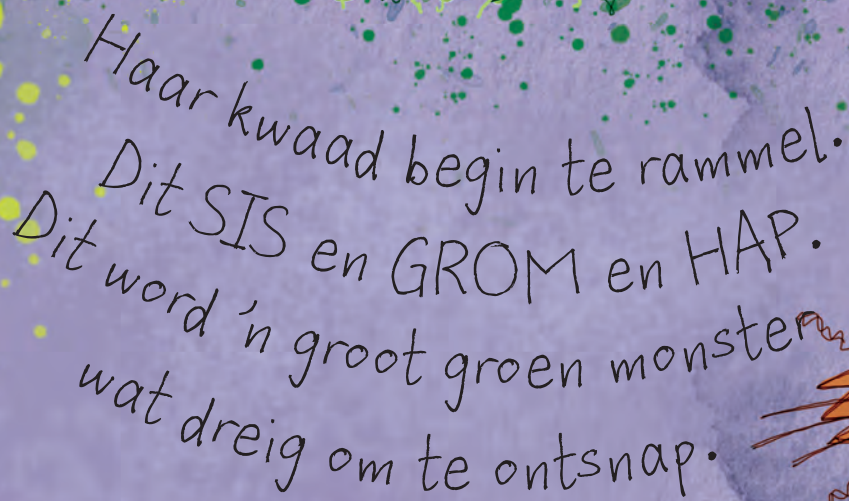 Haar kwaad begin te rammel.
Dit SIS en GROM en HAP.
Dit word 'n groot groen monster
wat dreig om te ontsnap.